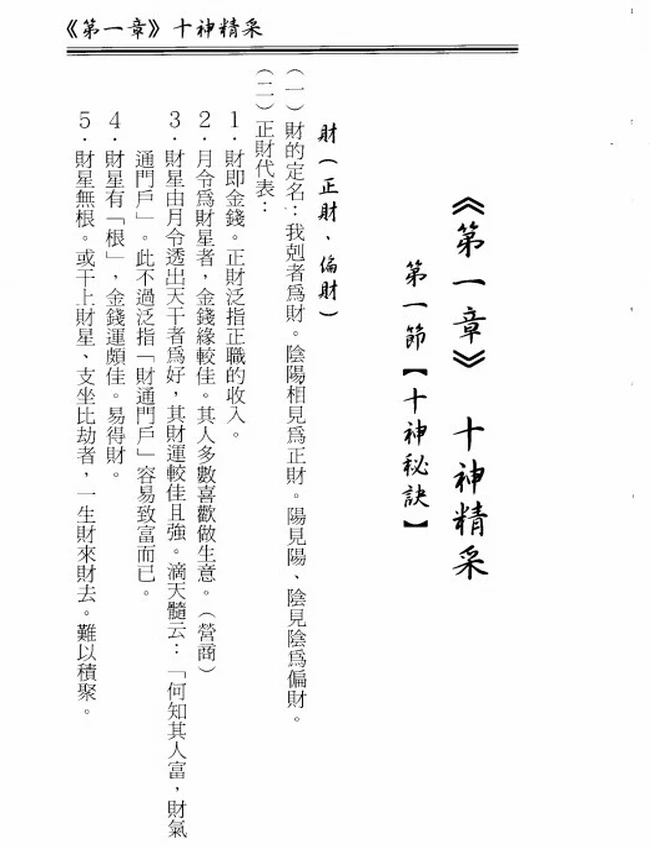 《第一章》十神精采
《第一章》 十神精采
第一節【十神秘訣】
財（正財、偏財）
（一）財的定名：我剋者爲財。陰陽相見爲正財。陽見陽、陰見陰爲偏財。
（二）正財代表：
1．財即金錢。正財泛指正職的收入。
2．月令爲財星者，金錢緣較佳。其人多數喜歡做生意。（營商）
3．財星由月令透出天干者爲好，其財運較佳且強。滴天髓云：「何知其人富，財氣
通門戶」。此不過泛指「財通門戶」容易致富而已。
4．財星有「根」，金錢運頗佳。易得財。
5．財星無根。或干上財星、支坐比劫者，一生財來財去。難以積聚。